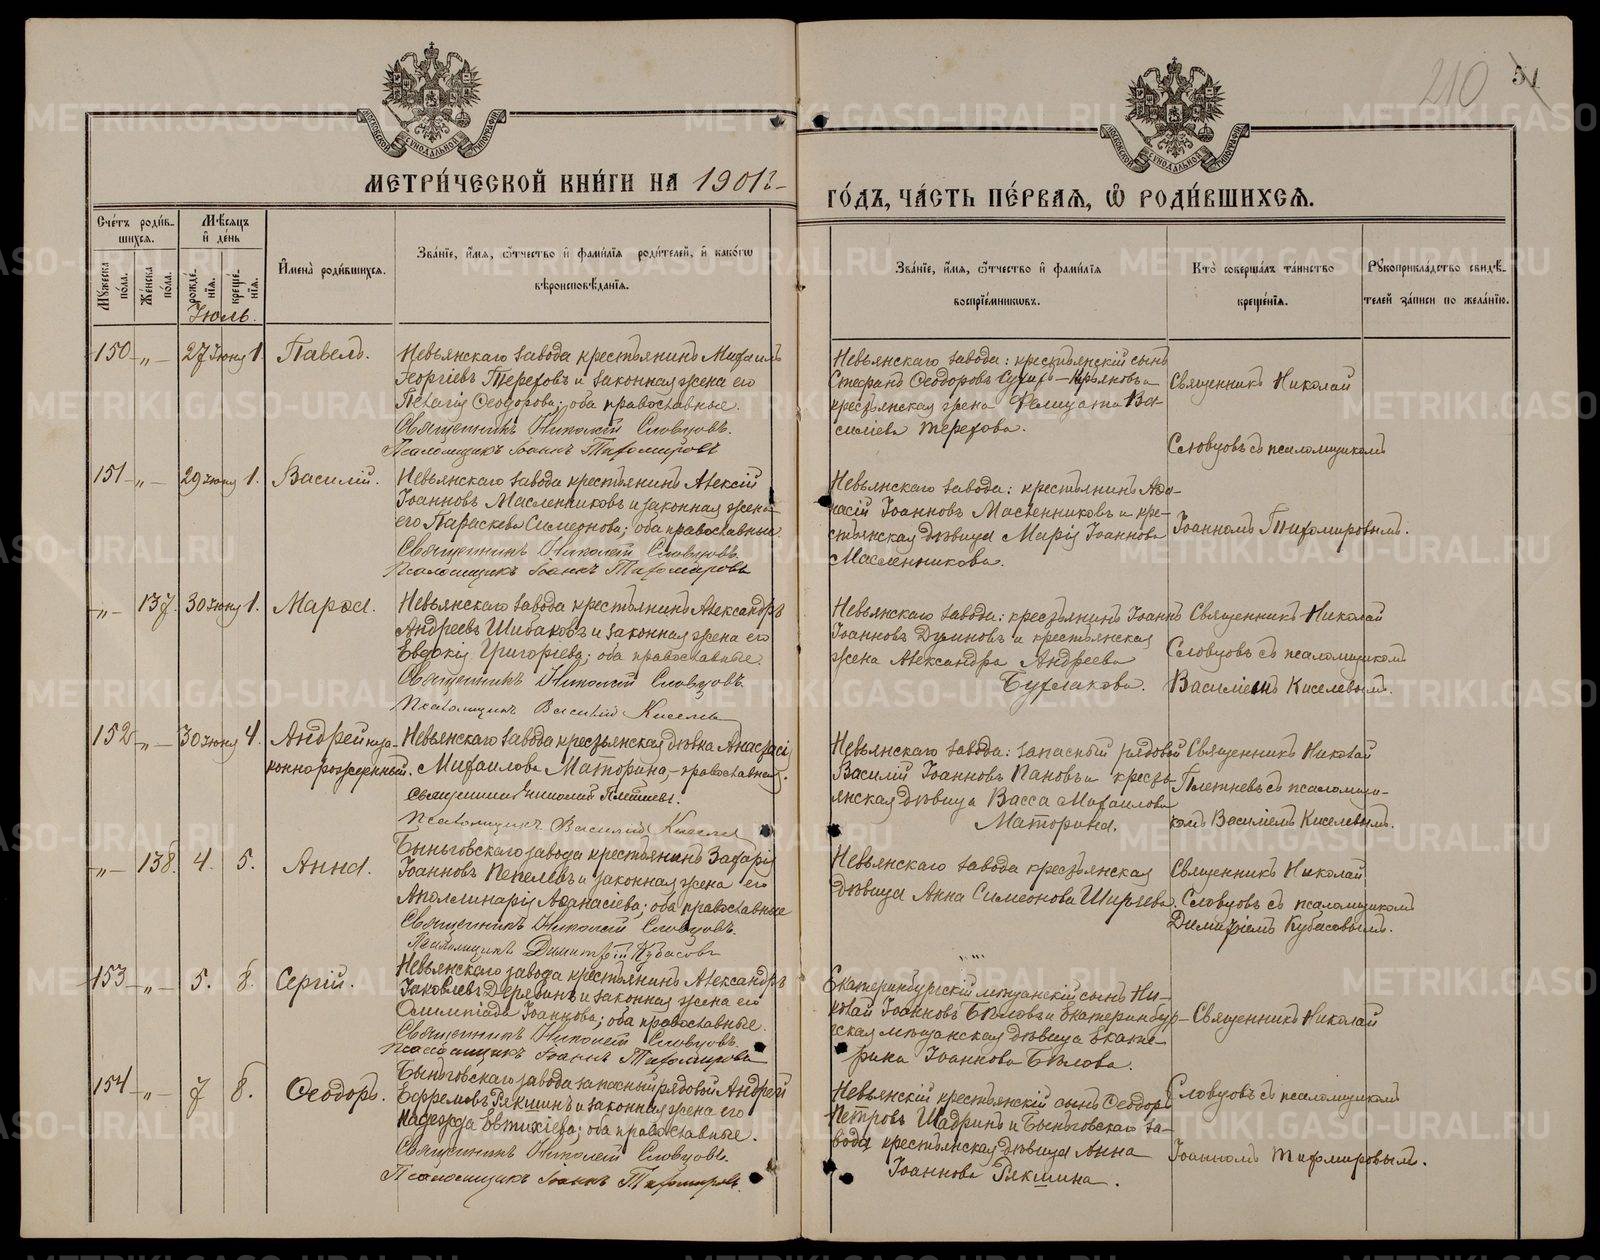 210
51
МОСКОВСКОЙ СѴНОДАЛЬНОЙ ТИПОГРАФІИ
МОСКОВСКОЙ СѴНОДАЛЬНОЙ ТИПОГРАФІИ
МЕТРИ́ЧЕСКОЙ КНИ́ГИ НА 1901 г.
ГО́ДЪ, ЧА́СТЬ ПЕ́РВАЯ, Ѡ҆ РОДИ́ВШИХСЯ.
Сче́тъ роди́вшихся.
Му́жеска по́ла.
Же́нска по́ла.
Мѣ́сяцъ и҆ де́нь
рожде́нїя.
креще́нїя.
Имена̀ роди́вшихся.
Зва́нїе, и҆́мя, ѻ҆́тчество и҆ фами́лїя роди́телей, и҆ како́гѡ вѣроисповѣ́данїя.
Зва́нїе, и҆́мя, ѻ҆́тчество и҆ фами́лїя воспрїе́мниковъ.
Кто̀ соверша́лъ та́инство креще́нїя.
Рукоприкла́дство свидѣ́телей за́писи по жела́нїю.
Іюль.
150 „ 27 Іюня 1. Павелъ.
Невьянскаго завода крестьянинъ Михаилъ
Георгіевъ Тереховъ и законная жена его
Пелагія Ѳеодорова; оба православные.
Священникъ Николай Словцовъ.
Псаломщикъ Іоаннъ Тихомировъ
Невьянскаго завода: крестьянскій сынъ
Стефанъ Ѳеодоровъ
крестьянская жена Ва-
силіева Терехова.
Священникъ Николай
Словцовъ съ псаломщикомъ
151 „ 29 Іюня 1. Василій.
Невьянскаго завода крестьянинъ Алексій
Іоанновъ Масленниковъ и законная жена
его Параскева Симеонова; оба православные
Священникъ Николай Словцовъ.
Псаломщикъ Іоаннъ Тихомировъ
Невьянскаго завода: крестьянинъ Аѳа-
насій Іоанновъ Масленниковъ и кре-
стьянская дѣвица Марія Іоаннова
Масленникова.
Іоанномъ Тихомировымъ.
„ 137. 30 Іюня 1. Марѳа.
Невьянскаго завода крестьянинъ Александръ
Андреевъ Шибаковъ и законная жена его
Евдокія Григоріева; оба православные.
Священникъ Николай Словцовъ.
Псаломщикъ Василій Киселевъ
Невьянскаго завода: крестьянинъ Іоаннъ
Іоанновъ и крестьянская
жена Александра Андреева
Бурлакова.
Священникъ Николай
Словцовъ съ псаломщикомъ
Василіемъ Киселевымъ.
152 „ 30 Іюня 4. Андрей неза-
коннорожденный.
Невьянскаго завода крестьянская дѣвка Анастасія
Михаилова Маторина, православная.
Священникъ Николай Плетневъ.
Псаломщикъ Василій Киселевъ
Невьянскаго завода: запасный рядовой
Василій Іоанновъ Пановъ и кресть-
янская дѣвица Васса Михаилова
Маторина.
Священникъ Николай
Плетневъ съ псаломщи-
комъ Василіемъ Киселевымъ.
„ 138. 4. 5. Анна.
Быньговскаго завода крестьянинъ Захарія
Іоанновъ Пепелевъ и законная жена его
Аполлинарія Аѳанасіева; оба православные
Священникъ Николай Словцовъ.
Псаломщикъ Димитрій Кубасовъ
Невьянскаго завода крестьянская
дѣвица Анна Симеонова Ширяева.
Священникъ Николай
Словцовъ съ псаломщикомъ
Димитріемъ Кубасовымъ.
153 „ 5. 8. Сергій.
Невьянскаго завода крестьянинъ Александръ
Іаковлевъ Дерябинъ и законная жена его
Олимпіада Іоаннова; оба православные.
Священникъ Николай Словцовъ.
Псаломщикъ Іоаннъ Тихомировъ
Екатеринбургскій мѣщанскій сынъ Ни-
колай Іоанновъ Бѣловъ и Екатеринбур-
гская мѣщанская дѣвица Екате-
рина Іоаннова Бѣлова.
Священникъ Николай
154 „ 7 8. Ѳеодоръ.
Быньговскаго завода запасный рядовой Андрей
Ефремовъ Рякшинъ и законная жена его
Надежда Евтихіева; оба православные.
Священникъ Николай Словцовъ.
Псаломщикъ Іоаннъ Тихомировъ.
Невьянскій крестьянскій сынъ Ѳеодоръ
Петровъ Шадринъ и Быньговскаго за-
вода крестьянская дѣвица Анна
Іоаннова Рякшина.
Словцовъ съ псаломщикомъ
Іоанномъ Тихомировымъ.
METRIKI.GASO-URAL.RU